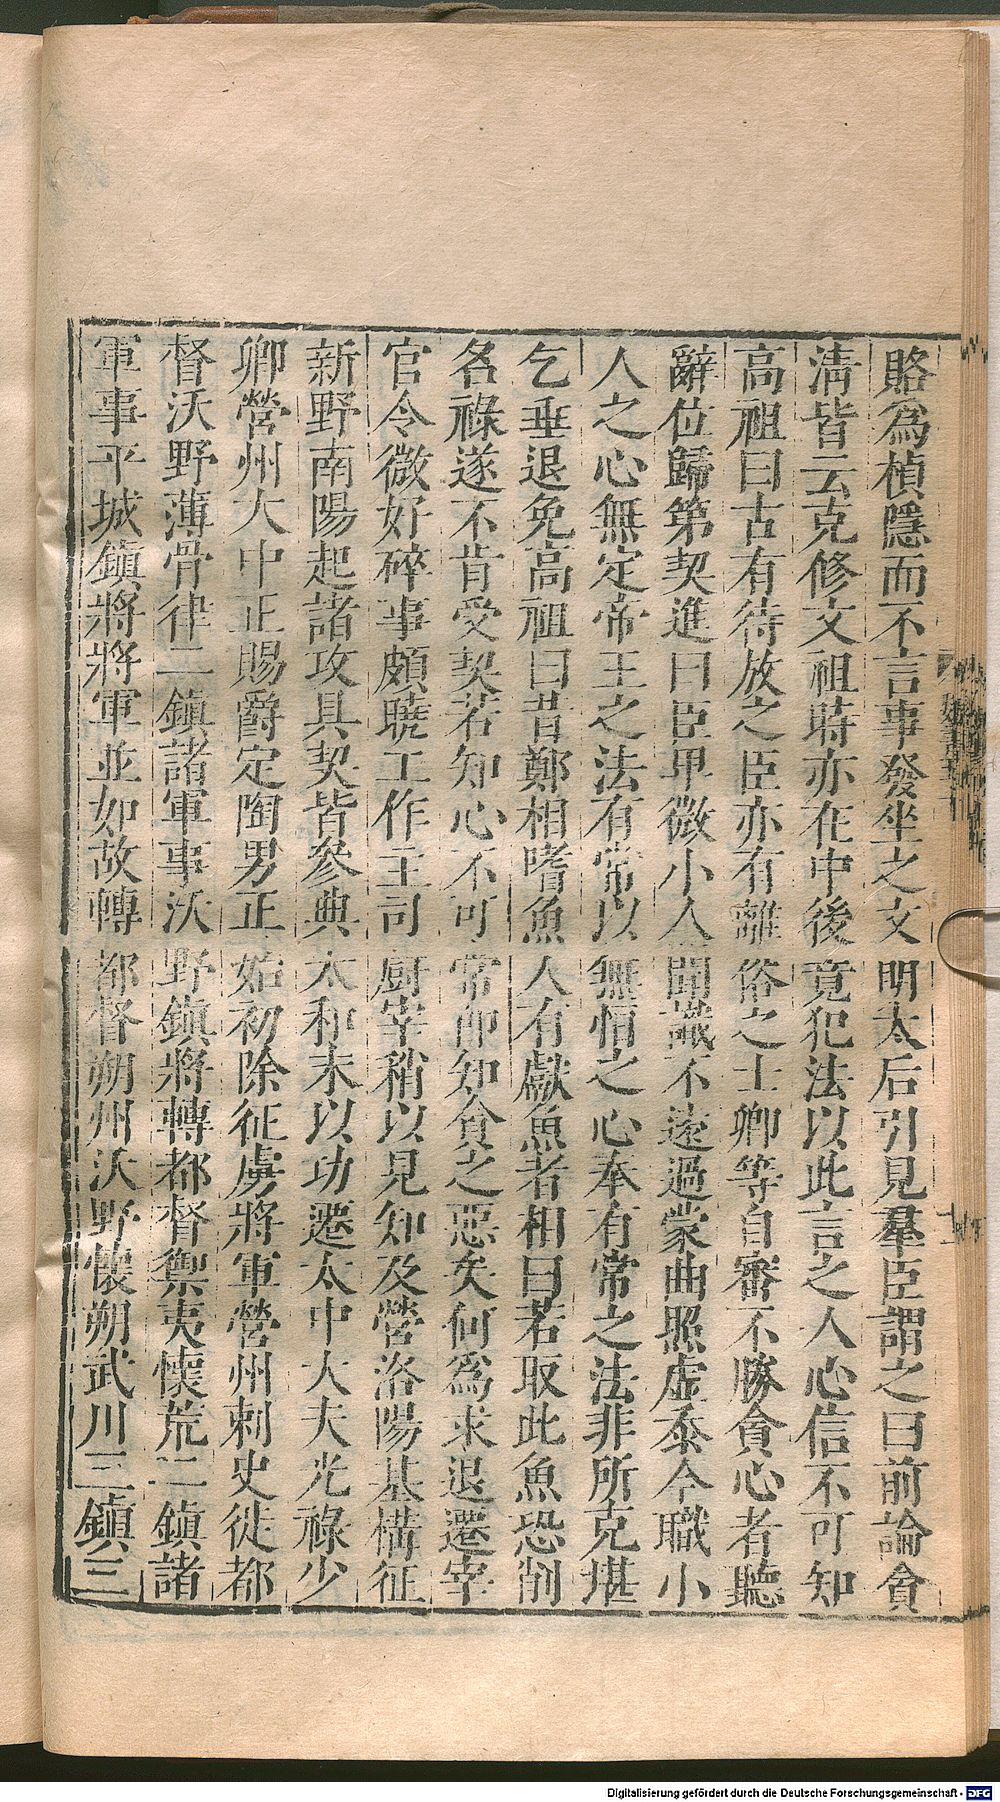 賂為楨隱而不言事發坐之文明太后引見羣臣謂之曰前論貪
清皆云克修文祖時亦在中後竟犯法以此言之人心信不可知
高祖曰古有待放之臣亦有離俗之士卿等自審不勝貪心者聽
辭位歸第契進曰臣卑微小人聞識不遠過蒙曲照虛忝今職小
人之心無定帝王之法有常以無恒之心奉有常之法非所克堪
乞垂退免高祖曰昔鄭相嗜魚人有獻魚者相曰若取此魚恐削
名祿遂不肯受契若知心不可常卽知貪之惡矣何為求退遷宰
官令微好碎事頗曉工作主司廚宰稍以見知及營洛陽基構征
新野南陽起諸攻具契皆參典太和末以功遷太中大夫光祿少
卿營州大中正賜爵定陶男正始初除征虜將軍營州刺史徙都
督沃野薄骨律二鎮諸軍事沃野鎮將轉都督禦夷懷荒二鎮諸
軍事平城鎮將將軍並如故轉都督朔州沃野懷朔武川三鎮三
Digitalisierung gefördert durch die Deutsche Forschungsgemeinschaft - DFG